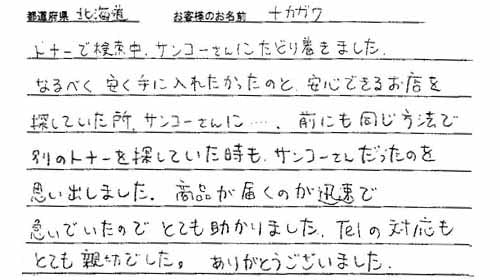 都道府県 北海道 お客様のお名前 ナカガワ
トナーで検索中、サンコーさんにたどり着きました。
なるべく安く手に入れたかったのと、安心できるお店を
探していた所、サンコーさんに……。前にも同じ方法で
別のトナーを探していた時も、サンコーさんだったのを
思い出しました。商品が届くのが迅速で
急いでいたのでとても助かりました。Telの対応も
とても親切でした。ありがとうございました。